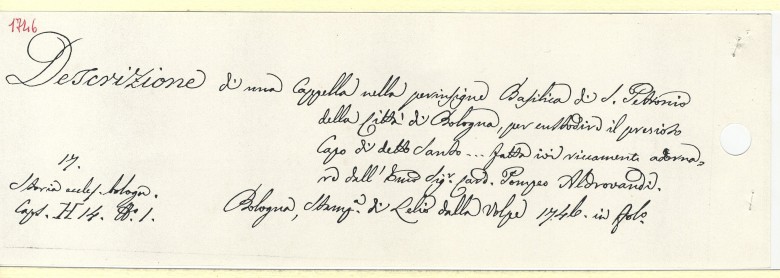 1746
Descrizione di una Cappella nella perinsigne Basilica di S. Petronio
della Città di Bologna, per custodire il prezioso
Capo di detto Santo ... fatta ivi riccamente adorna-
re dall' Emo Sigr. Card. Pompeo Aldrovandi.
17.
Storia eccles. bologn.
Caps. H 14. No. 1.
Bologna, Stampa. di Lelio dalla Volpe 1746. in fol.